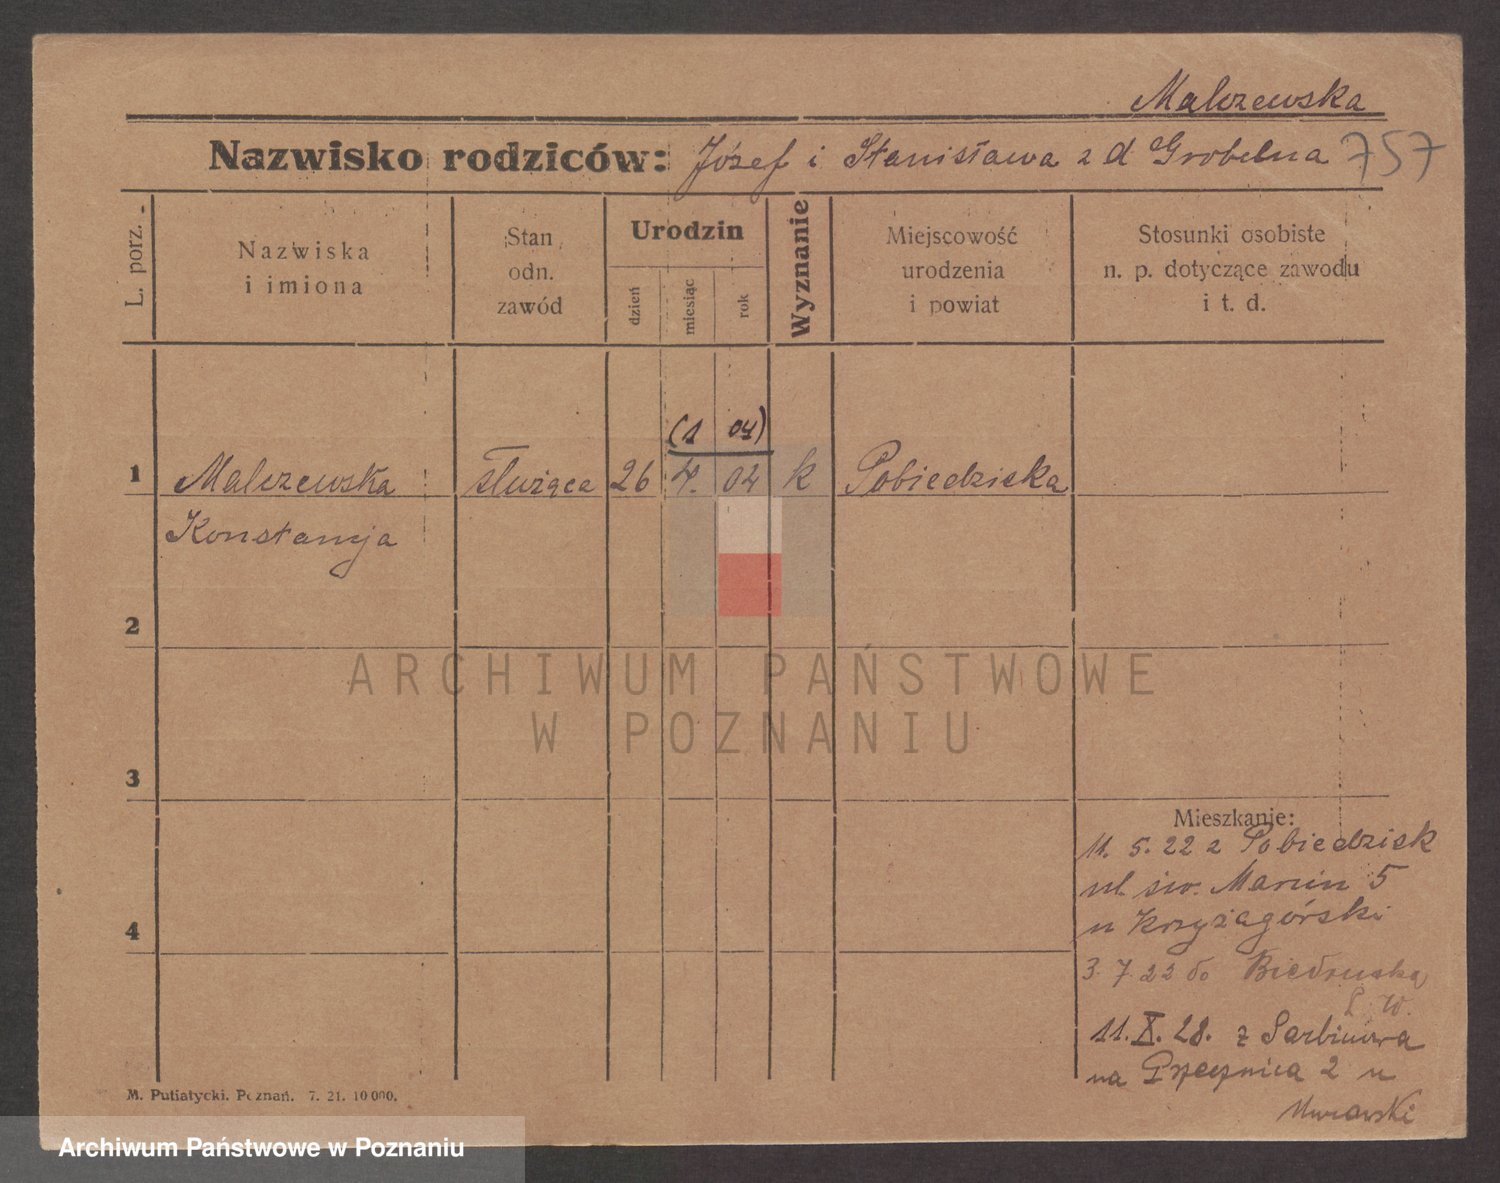 Malczewska
Nazwisko rodziców: Józef i Stanisława z d Grobelna 757
L. porz.
Nazwiska
i imiona
Stan
odn.
zawód
Urodzin
dzień
miesiąc
rok
Wyznanie
Miejscowość
urodzenia
i powiat
Stosunki osobiste
n. p. dotyczące zawodu
i t. d.
(1 04)
1 Malczewska służąca 26 4. 04 k Pobiedziska
Konstancja
2
3
4
ARCHIWUM PAŃSTWOWE
W POZNANIU
Mieszkanie:
11. 5. 22 z Pobiedzisk
ul. św. Marcin 5
u Krzyżagórski
3. 7. 22 do Biedruska
11. X. 28. z Sarbinowa
na Przecznica 2 u
Murawski
M. Putiatycki. Poznań. 7. 21. 10 000.
Archiwum Państwowe w Poznaniu